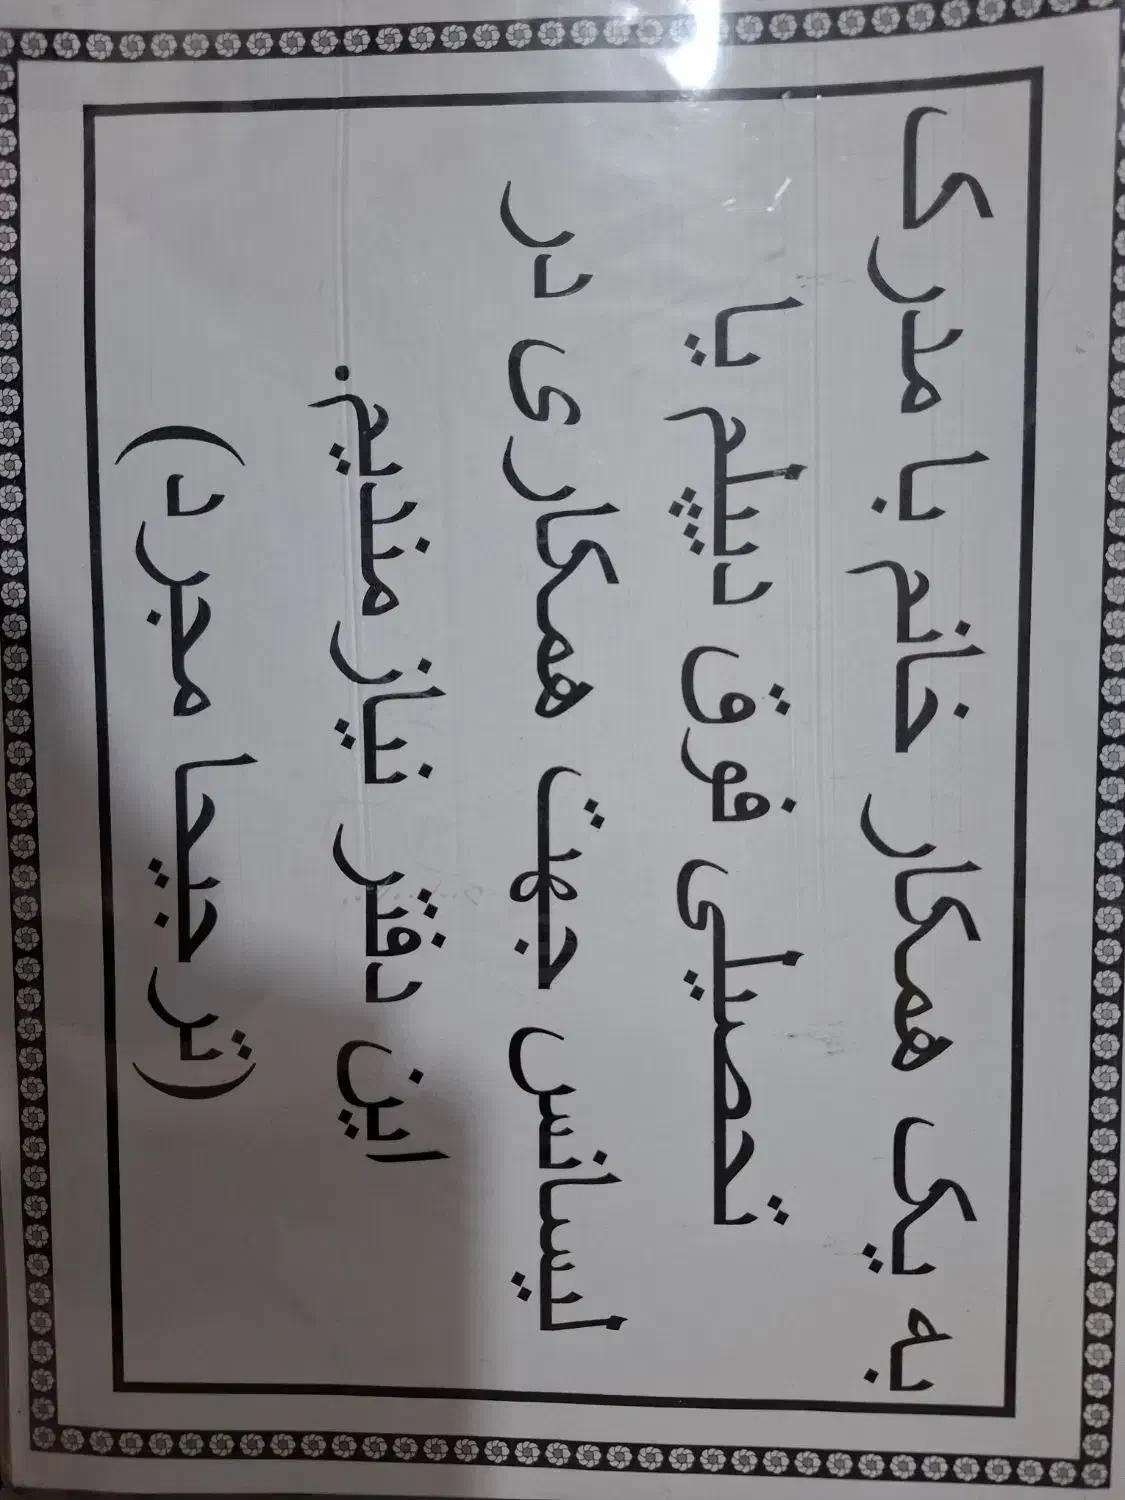 به یک همکار خانم با مدرک
تحصیلی فوق دیپلم یا
لیسانس جهت همکاری در
این دفتر نیاز مندیم.
(ترجیحا مجرد)